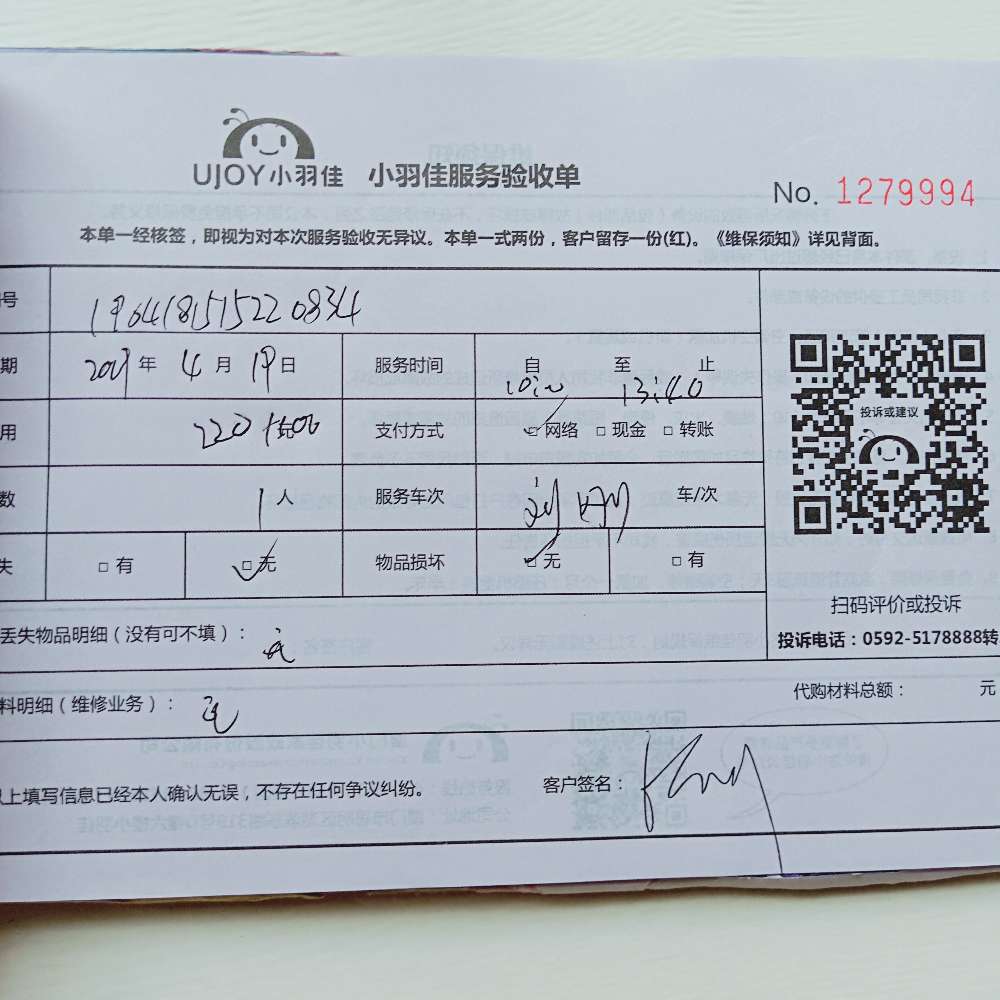 UJOY小羽佳 小羽佳服务验收单
No. 1279994
本单一经核签，即视为对本次服务验收无异议。本单一式两份，客户留存一份(红)。《维保须知》详见背面。
号 1964181515220834
期 2019年 4月 19日 服务时间 自 至 止
10:00 13:40
用 220 支付方式 □网络 □现金 □转账
投诉或建议
数 1人 服务车次 车/次
失 □有 □无 物品损坏 □无 □有
扫码评价或投诉
丢失物品明细（没有可不填）： 无
投诉电话：0592-5178888转
料明细（维修业务）： 无 代购材料总额： 元
以上填写信息已经本人确认无误，不存在任何争议纠纷。 客户签名：